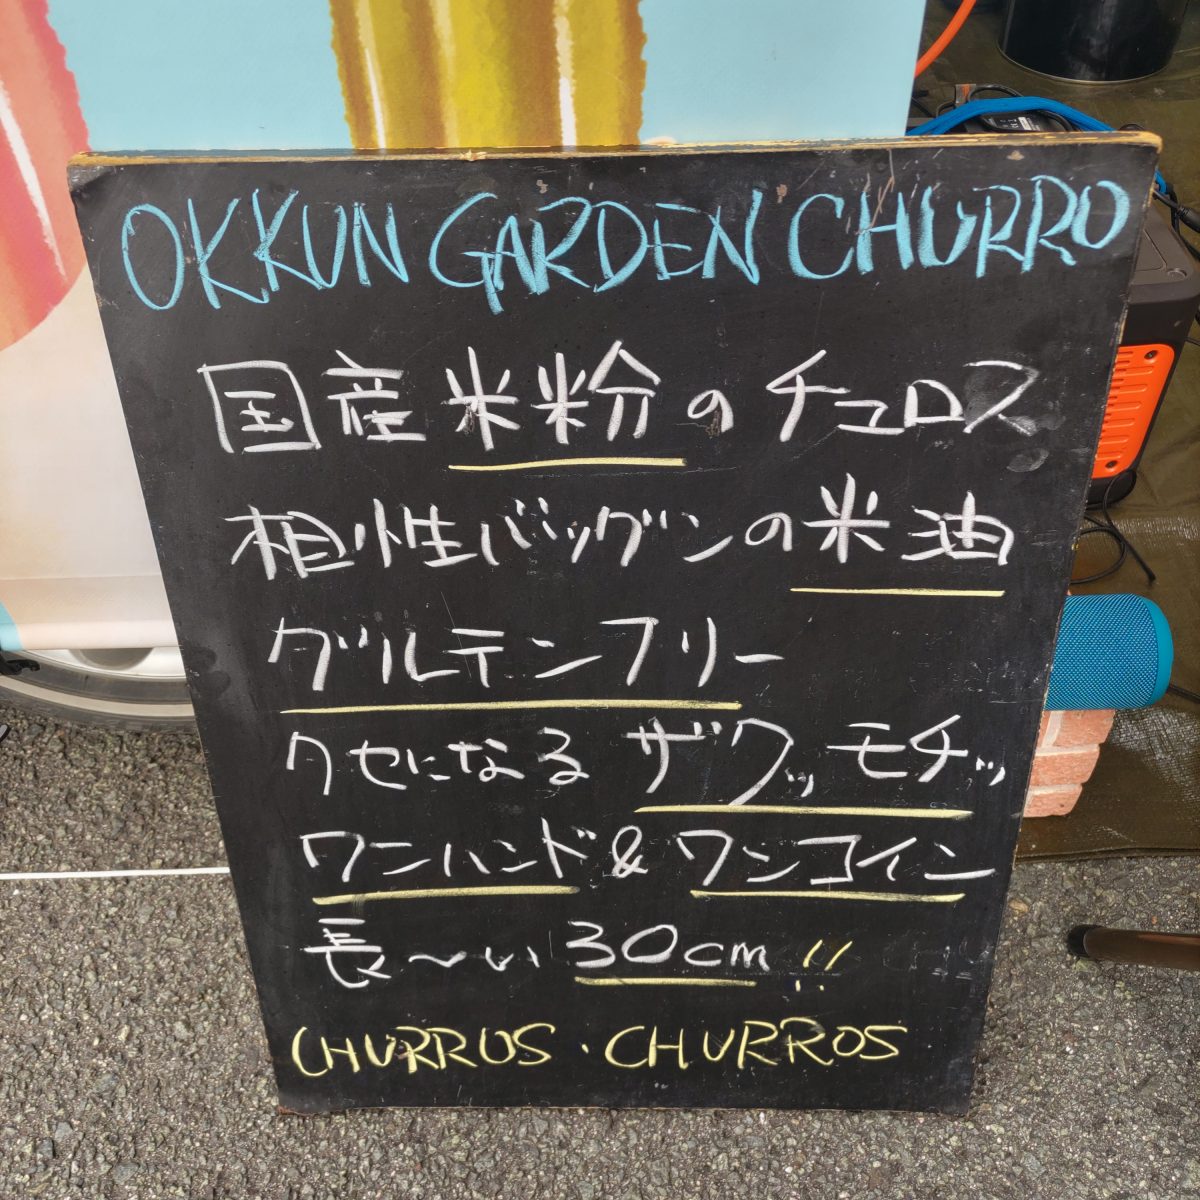 OKKUN GARDEN CHURRO
国産米粉のチュロス
相性バッグンの米油
グルテンフリー
クセになるザクッモチッ
ワンハンド&ワンコイン
長〜い30cm!!
CHURROS・CHURROS